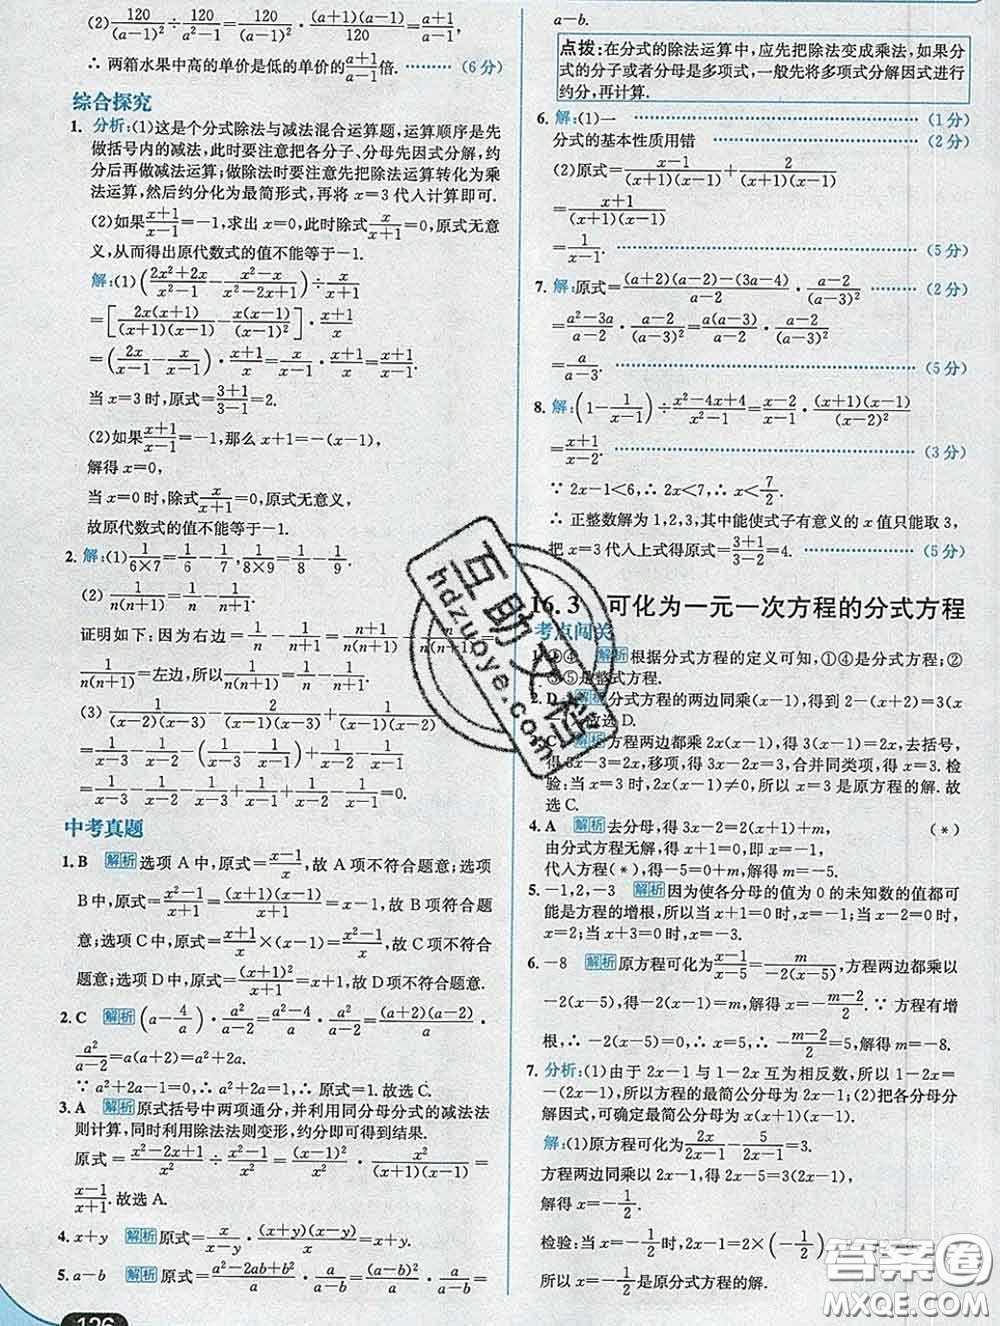 (2) 120/(a−1)² ÷ 120/((a+1)(a−1)) = 120/(a−1)² · (a+1)(a−1)/120,
∴ 两箱水果中高的单价是低的单价的(a+1)/(a−1)倍. ………(6分)
综合探究
1. 分析:(1)这是个分式除法与减法混合运算题,运算顺序是先
做括号内的减法,此时要注意把各分子、分母先因式分解,约
分后再做减法运算;做除法时要注意先把除法运算转化为乘
法运算,然后约分化为最简形式,再将 x=3代入计算即可.
(2)如果(x+1)/(x−1)=−1,求出 x=0,此时除式x/(x+1)=0,原式无意
义,从而得出原代数式的值不能等于−1.
解:(1)((2x²+2x)/(x²−1) − (x²−x)/(x²−2x+1)) ÷ x/(x+1)
=[2x(x+1)/((x+1)(x−1)) − x(x−1)/(x−1)²] · (x+1)/x
=(2x/(x−1) − x/(x−1)) · (x+1)/x = x/(x−1) · (x+1)/x = (x+1)/(x−1).
当 x=3时,原式=(3+1)/(3−1)=2.
(2)如果(x+1)/(x−1)=−1,那么 x+1=−(x−1),
解得 x=0,
当 x=0时,除式x/(x+1)=0,原式无意义,
故原代数式的值不能等于−1.
2. 解:(1)1/(6×7)=1/6−1/7,1/(8×9)=1/8−1/9.
(2) 1/(n(n+1))=1/n−1/(n+1).
证明如下:因为右边=1/n−1/(n+1)=(n+1)/(n(n+1))−n/(n(n+1))=
1/(n(n+1))=左边,所以1/(n(n+1))=1/n−1/(n+1).
(3) 1/((x−2)(x−3))−2/((x−1)(x−3))+1/((x−1)(x−2))
=1/(x−3)−1/(x−2)−(1/(x−3)−1/(x−1))+1/(x−2)−1/(x−1)
=1/(x−3)−1/(x−2)−1/(x−3)+1/(x−1)+1/(x−2)−1/(x−1)=0.
中考真题
1. B 解析 选项 A 中,原式=(x−1)/x,故 A 项不符合题意;选项
B中,原式=(x²−1)/(x+1)=(x+1)(x−1)/(x+1)=x−1,故 B 项符合题
意;选项C中,原式=(x+1)/x×(x−1)=(x²−1)/x,故C项不符合
题意;选项D中,原式=(x+1)²/(x+1)=x+1,故D项不符合题意.
2. C 解析 (a−4/a)·a²/(a−2)=(a²−4)/a·a²/(a−2)=(a+2)(a−2)/a·
a²/(a−2)=a(a+2)=a²+2a.
∵ a²+2a−1=0,∴ a²+2a=1,∴ 原式=1.故选 C.
3. A 解析 原式括号中两项通分,并利用同分母分式的减法法
则计算,同时利用除法法则变形,约分即可得到结果.
原式=(x²−2x+1)/x²÷(x²−1)/x²=(x−1)²/x²·x²/((x+1)(x−1))=
(x−1)/(x+1).故选 A.
4. x+y 解析 原式=x/(x−y)·(x+y)(x−y)/x=x+y.
5. a−b 解析 原式=(a²−2ab+b²)/a·a/(a−b)=(a−b)²/a·a/(a−b)=
126
a−b.
点拨:在分式的除法运算中,应先把除法变成乘法,如果分
式的分子或者分母是多项式,一般先将多项式分解因式进行
约分,再计算.
6. 解:(1)一 ………(1分)
分式的基本性质用错 ………(2分)
(2)原式=(x−1)/((x+1)(x−1))+2/((x+1)(x−1))
=(x+1)/((x+1)(x−1))
=1/(x−1). ………(5分)
7. 解:原式=((a+2)(a−2)−(3a−4))/(a−2)·(a−2)/(a−3)² ………(2分)
=(a²−3a)/(a−2)·(a−2)/(a−3)²=a(a−3)/(a−2)·(a−2)/(a−3)²
=a/(a−3). ………(5分)
8. 解:(1−1/(x−1))÷(x²−4x+4)/(x²−1)=(x−2)/(x−1)·(x+1)(x−1)/(x−2)²
=(x+1)/(x−2). ………(3分)
∵ 2x−1<6,∴ 2x<7,∴ x<7/2.
∴ 正整数解为1,2,3,其中能使式子有意义的x值只能取3,
把 x=3代入上式得原式=(3+1)/(3−2)=4. ………(5分)
16.3 可化为一元一次方程的分式方程
考点闯关
1. ①④ 解析 根据分式方程的定义可知,①④是分式方程;②
③⑤是整式方程.
2. D 解析 分式方程的两边同乘(x−1),得到2−(x+2)=3(x
故选D.
3. C 解析 方程两边都乘2x(x−1),得3(x−1)=2x,去括号,
得3x−3=2x,移项,得3x−2x=3,合并同类项,得x=3.检
验:当x=3时,2x(x−1)≠0,所以x=3是原方程的解.故
选 C.
4. A 解析 去分母,得3x−2=2(x+1)+m, (*)
由分式方程无解,得 x+1=0,即 x=−1,
代入方程(*),得−5=0+m,解得m=−5.
5. −1,2,−3 解析 因为使各分母的值为0的未知数的值都可
能是方程的增根,所以当x+1=0时,x=−1;当x−2=0时,
x=2;当x+3=0时,x=−3.
6. −8 解析 原方程可化为(x−1)/(x−5)=m/(−2(x−5)),方程两边都乘以
−2(x−5),得−2(x−1)=m,解得x=(−m−2)/2... ∵ 方程有增
根,∴ −2(x−5)=0,∴ x=5,∴ (−m−2)/2=5,解得m=−8.
7. 分析:(1)由于 2x−1与 1−2x互为相反数,所以 1−2x=
−(2x−1),所以方程的最简公分母为2x−1;(2)把各分母分
解因式,可确定最简公分母为x(x+1)(x−1).
解:(1)原方程可化为2x/(2x−1)−5/(2x−1)=3.
方程两边同乘以2x−1,得2x−5=3(2x−1),
解得 x=−1/2.
检验:当 x=−1/2时,2x−1=2×(−1/2)
所以 x=−1/2是原分式方程的解.
互助文档
hdzuoye.com
答案圈
MXQE.COM